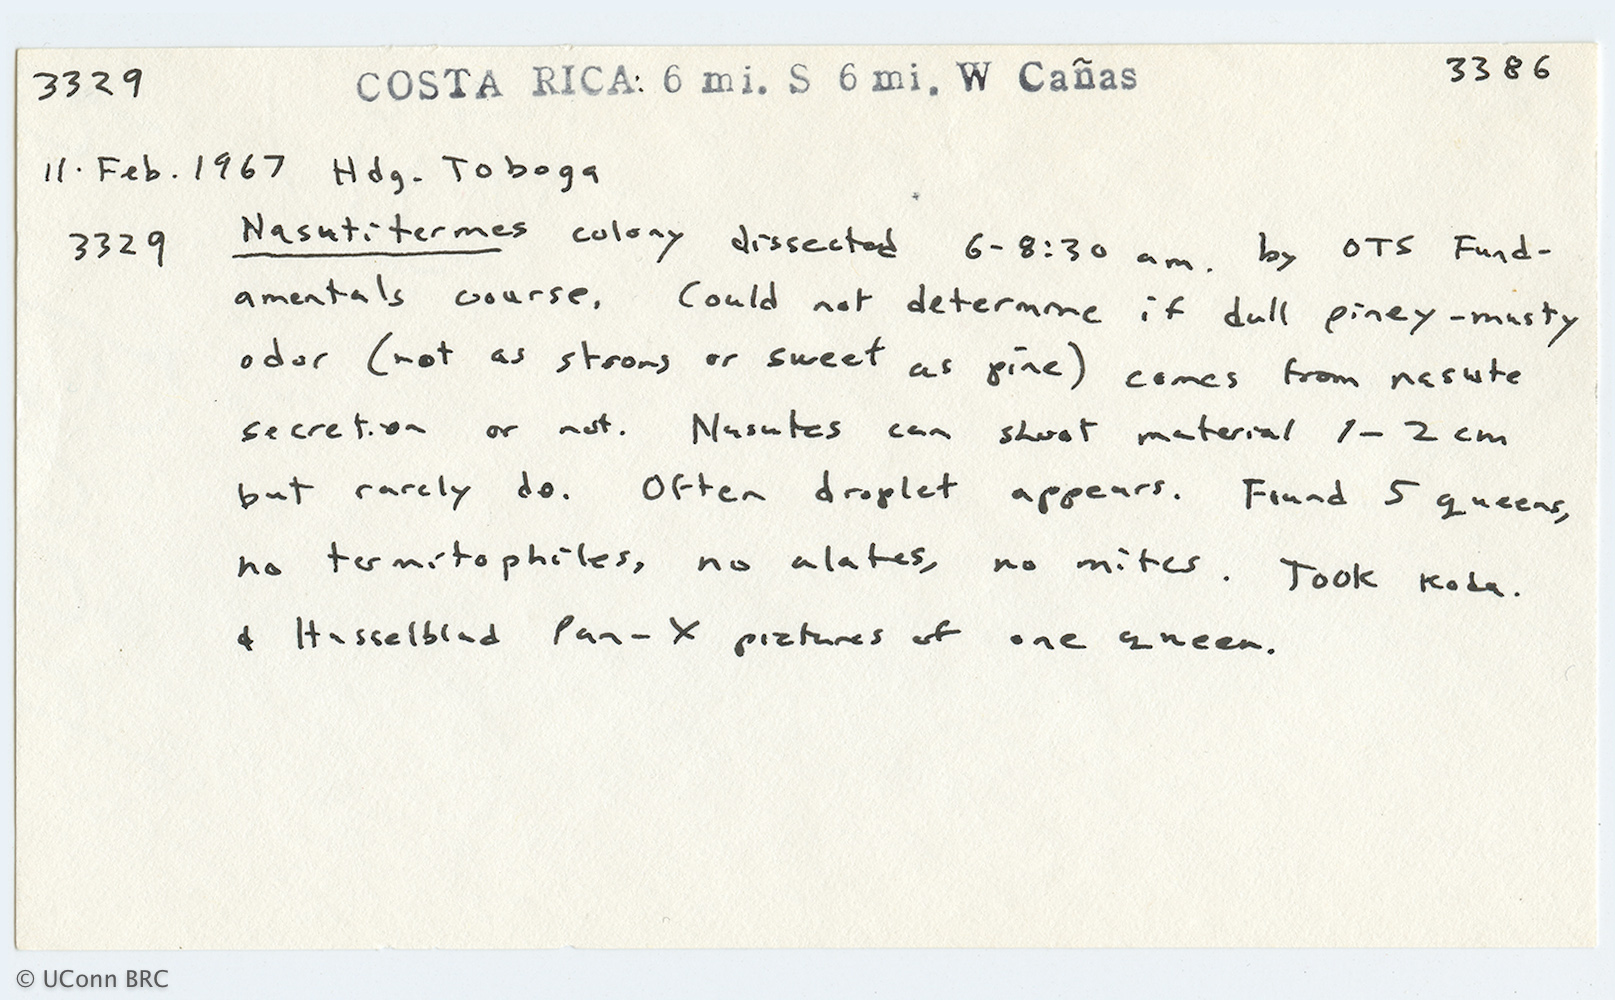 3329 COSTA RICA: 6 mi. S 6 mi. W Cañas 3386
11. Feb. 1967 Hdg. Toboga
3329 Nasutitermes colony dissected 6-8:30 am. by OTS Fund-
amentals course. Could not determine if dull piney-musty
odor (not as strong or sweet as pine) comes from nasute
secretion or not. Nasutes can shoot material 1-2 cm
but rarely do. Often droplet appears. Found 5 queens,
no termitophiles, no alates, no mites. Took Koda.
& Hasselblad Pan-X pictures of one queen.
© UConn BRC